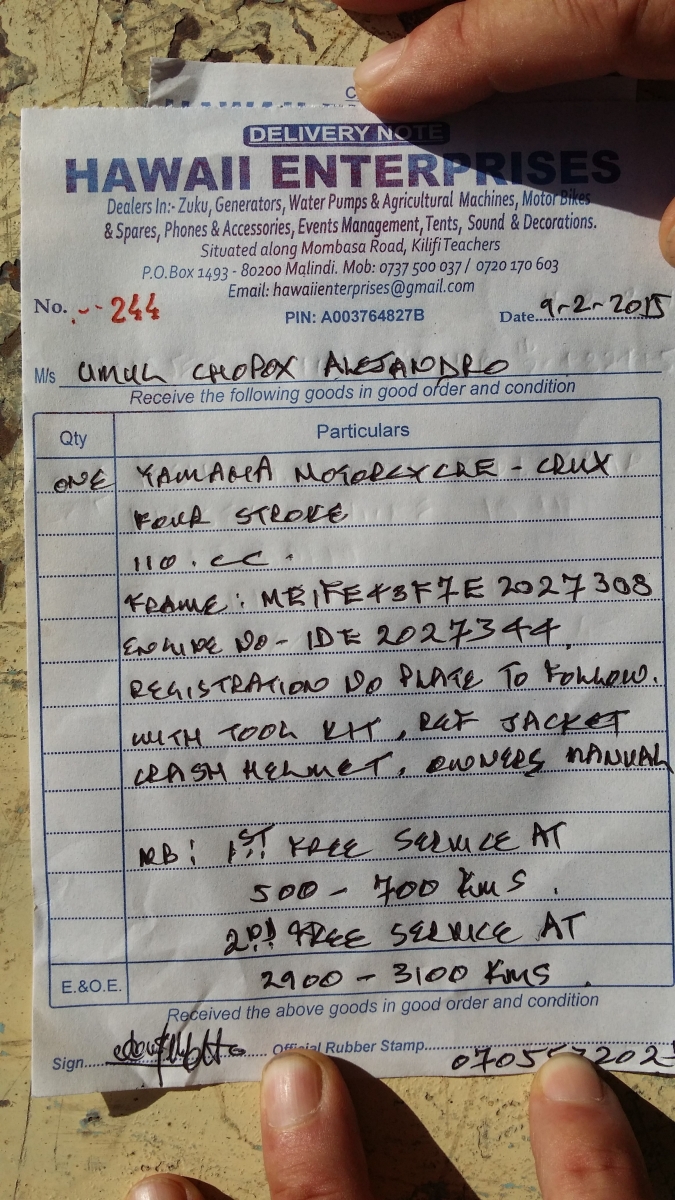 DELIVERY NOTE
HAWAII ENTERPRISES
Dealers In:- Zuku, Generators, Water Pumps & Agricultural Machines, Motor Bikes
& Spares, Phones & Accessories, Events Management, Tents, Sound & Decorations.
Situated along Mombasa Road, Kilifi Teachers
P.O.Box 1493 - 80200 Malindi. Mob: 0737 500 037 / 0720 170 603
Email: hawaiienterprises@gmail.com
No. 244
PIN: A003764827B
Date 9-2-2015
M/s UMUL CHOPOX ALEJANDRO
Receive the following goods in good order and condition
Qty Particulars
ONE YAMAHA MOTORCYCLE - CRUX
FOUR STROKE
110.CC.
FRAME: ME1FE43F7E 2027308
ENGINE NO - 1DE 2027344,
REGISTRATION NO PLATE TO FOLLOW.
WITH TOOL KIT, REF JACKET
CRASH HELMET, OWNERS MANUAL
NB: 1ST FREE SERVICE AT
500 - 700 KMS.
2ND FREE SERVICE AT
E.&O.E. 2900 - 3100 KMS.
Received the above goods in good order and condition
Sign Official Rubber Stamp